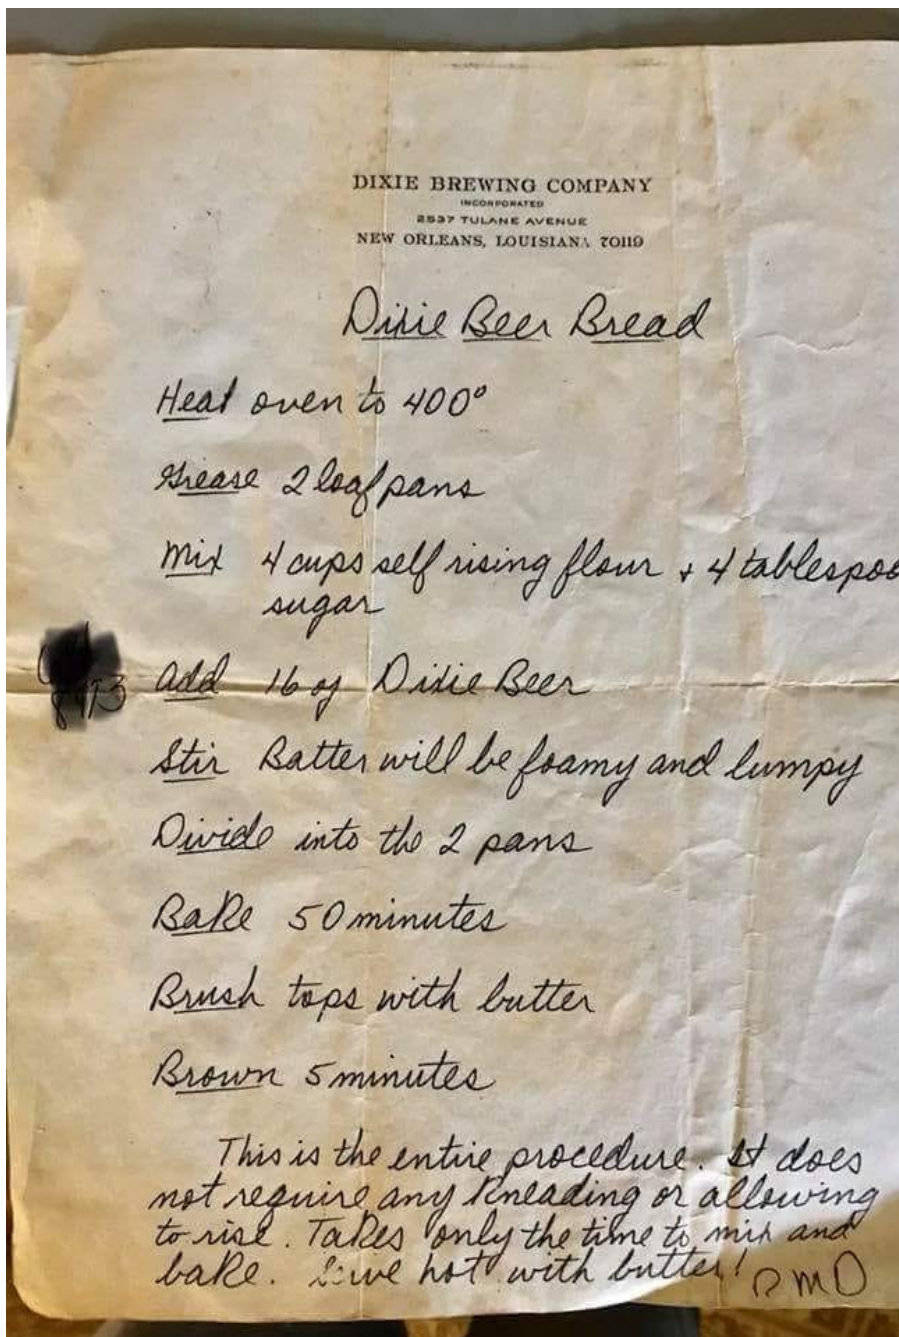 DIXIE BREWING COMPANY
INCORPORATED
2537 TULANE AVENUE
NEW ORLEANS, LOUISIANA 70119
Dixie Beer Bread
Heat oven to 400°
Grease 2 loaf pans
Mix 4 cups self rising flour + 4 tablespoo
sugar
Add 16 oz Dixie Beer
Stir Batter will be foamy and lumpy
Divide into the 2 pans
Bake 50 minutes
Brush tops with butter
Brown 5 minutes
This is the entire procedure. It does
not require any kneading or allowing
to rise. Takes only the time to mix and
bake. Serve hot with butter!
DMD